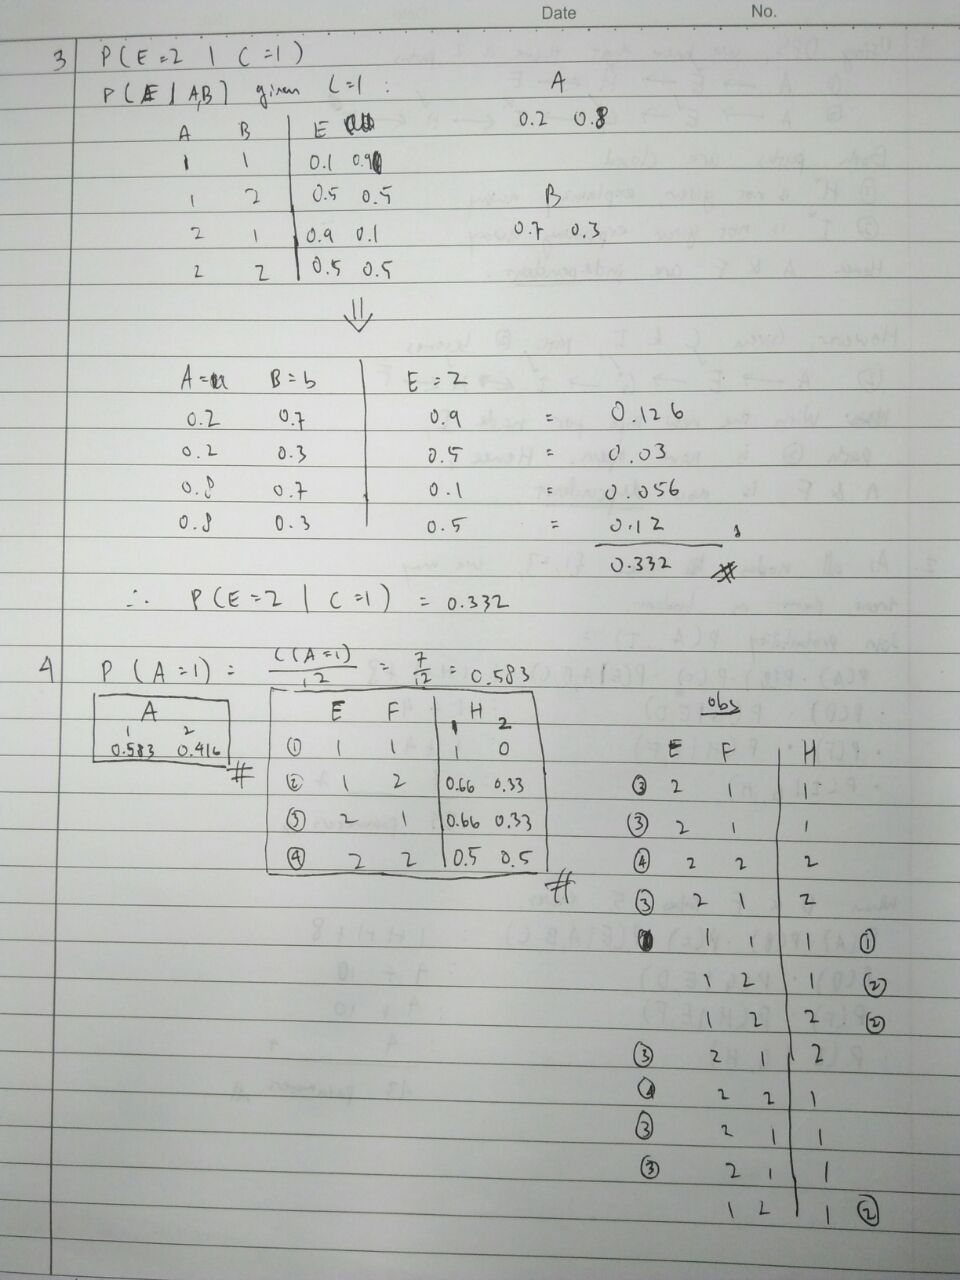 Date No.
3 P(E=2 | C=1)
P(E | A,B) given C=1 : A
0.2 0.8
A B E
1 1 0.1 0.9
1 2 0.5 0.5 B
2 1 0.9 0.1 0.7 0.3
2 2 0.5 0.5
⇓
A=a B=b E=2
0.2 0.7 0.9 = 0.126
0.2 0.3 0.5 = 0.03
0.8 0.7 0.1 = 0.056
0.8 0.3 0.5 = 0.12
0.332 #
∴ P(E=2 | C=1) = 0.332
4 P(A=1) = C(A=1)/12 = 7/12 = 0.583
A
1 2
0.583 0.416 #
E F H
1 2
① 1 1 1 0
② 1 2 0.66 0.33
③ 2 1 0.66 0.33
④ 2 2 0.5 0.5 #
obs
E F H
③ 2 1 1
③ 2 1 1
④ 2 2 2
③ 2 1 2
1 1 1 ①
1 2 1 ②
1 2 2 ②
③ 2 1 2
④ 2 2 1
③ 2 1 1
③ 2 1 1
1 2 1 ②